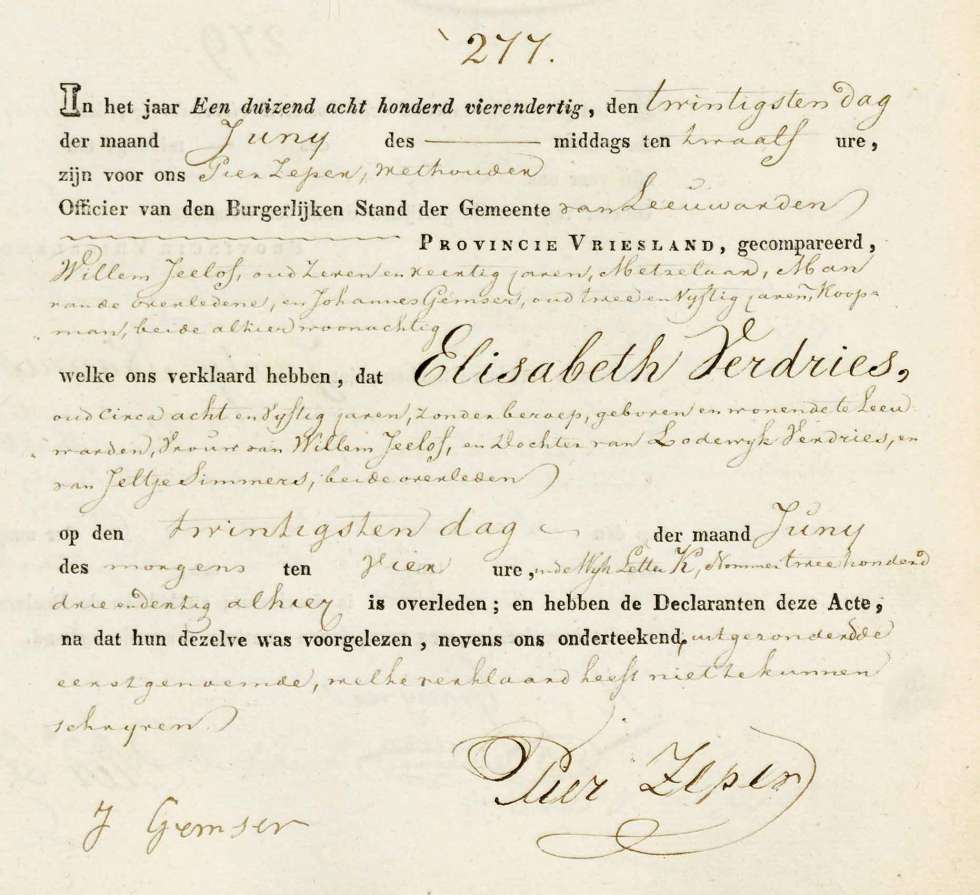 277.
In het jaar Een duizend acht honderd vierendertig, den twintigsten dag
der maand Juny des middags ten twaalf ure,
zijn voor ons Pier Zeper, Wethouder
Officier van den Burgerlijken Stand der Gemeente van Leeuwarden
PROVINCIE VRIESLAND, gecompareerd,
Willem Jeelof, oud zeven en veertig jaren, Metzelaar, Man
van de overledene, en Johannes Gemser, oud twee en vyftig jaren, Koop=
man, beide alhier woonachtig
welke ons verklaard hebben, dat Elisabeth Verdries,
oud circa acht en vyftig jaren, zonder beroep, geboren en wonende te Leeu
warden, Vrouw van Willem Jeelof, en Dochter van Lodewyk Verdries, en
van Jeltje Simmers, beide overleden
op den twintigsten dag der maand Juny
des morgens ten vier ure, in de Wyk Letter K, Nommer twee honderd
drie en dertig alhier is overleden; en hebben de Declaranten deze Acte,
na dat hun dezelve was voorgelezen, nevens ons onderteekend, uitgezonderd de
eerstgenoemde, welke verklaard heeft niet te kunnen
schryven.
Pier Zeper
J Gemser